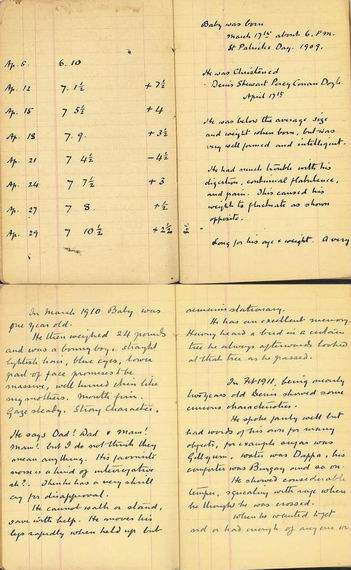 Ap. 5. 6. 10
Ap. 12 7. 1½ + 7½
Ap. 15 7 5½ + 4
Ap. 18 7. 9. + 3½
Ap. 21 7 4½ - 4½
Ap. 24 7 7½ + 3
Ap. 27 7 8. + ½
Ap. 29 7 10½ + 2½
Baby was born
March 17th about 6. P.M.
St Patricks Day. 1909.
He was Christened
Denis Stewart Percy Conan Doyle
April 17th
He was below the average size
and weight when born, but was
very well formed and intelligent.
He had much trouble with his
digestion, continual flatulence,
and pain. This caused his
weight to fluctuate as shown
opposite.
Long for his age & weight. A very
In March 1910 Baby was
one year old.
He then weighed 24 pounds
and was a bonny boy, straight
lightish hair, blue eyes, lower
part of face promises to be
massive, well turned chin like
my mothers. Mouth firm.
Gaze steady. Strong Character.
He says Dad! Dad & Mam!
Mam! but I do not think they
mean anything. His favourite
noise is a kind of interrogative
eh?. Then he has a very shrill
cry for disapproval.
He cannot walk or stand,
save with help. He moves his
legs rapidly when held up but
remains stationary.
He has an excellent memory.
Having heard a bird in a certain
tree he always afterwards looked
at that tree as he passed.
In Feb 1911, being nearly
two years old Denis showed some
curious characteristics.
He spoke fairly well but
had words of his own for many
objects, for example sugar was
water was Dappa, his
comforter was and so on.
He showed considerable
temper, squeaking with rage when
he thought he was crossed.
When he wanted to get
rid or had enough of any one or